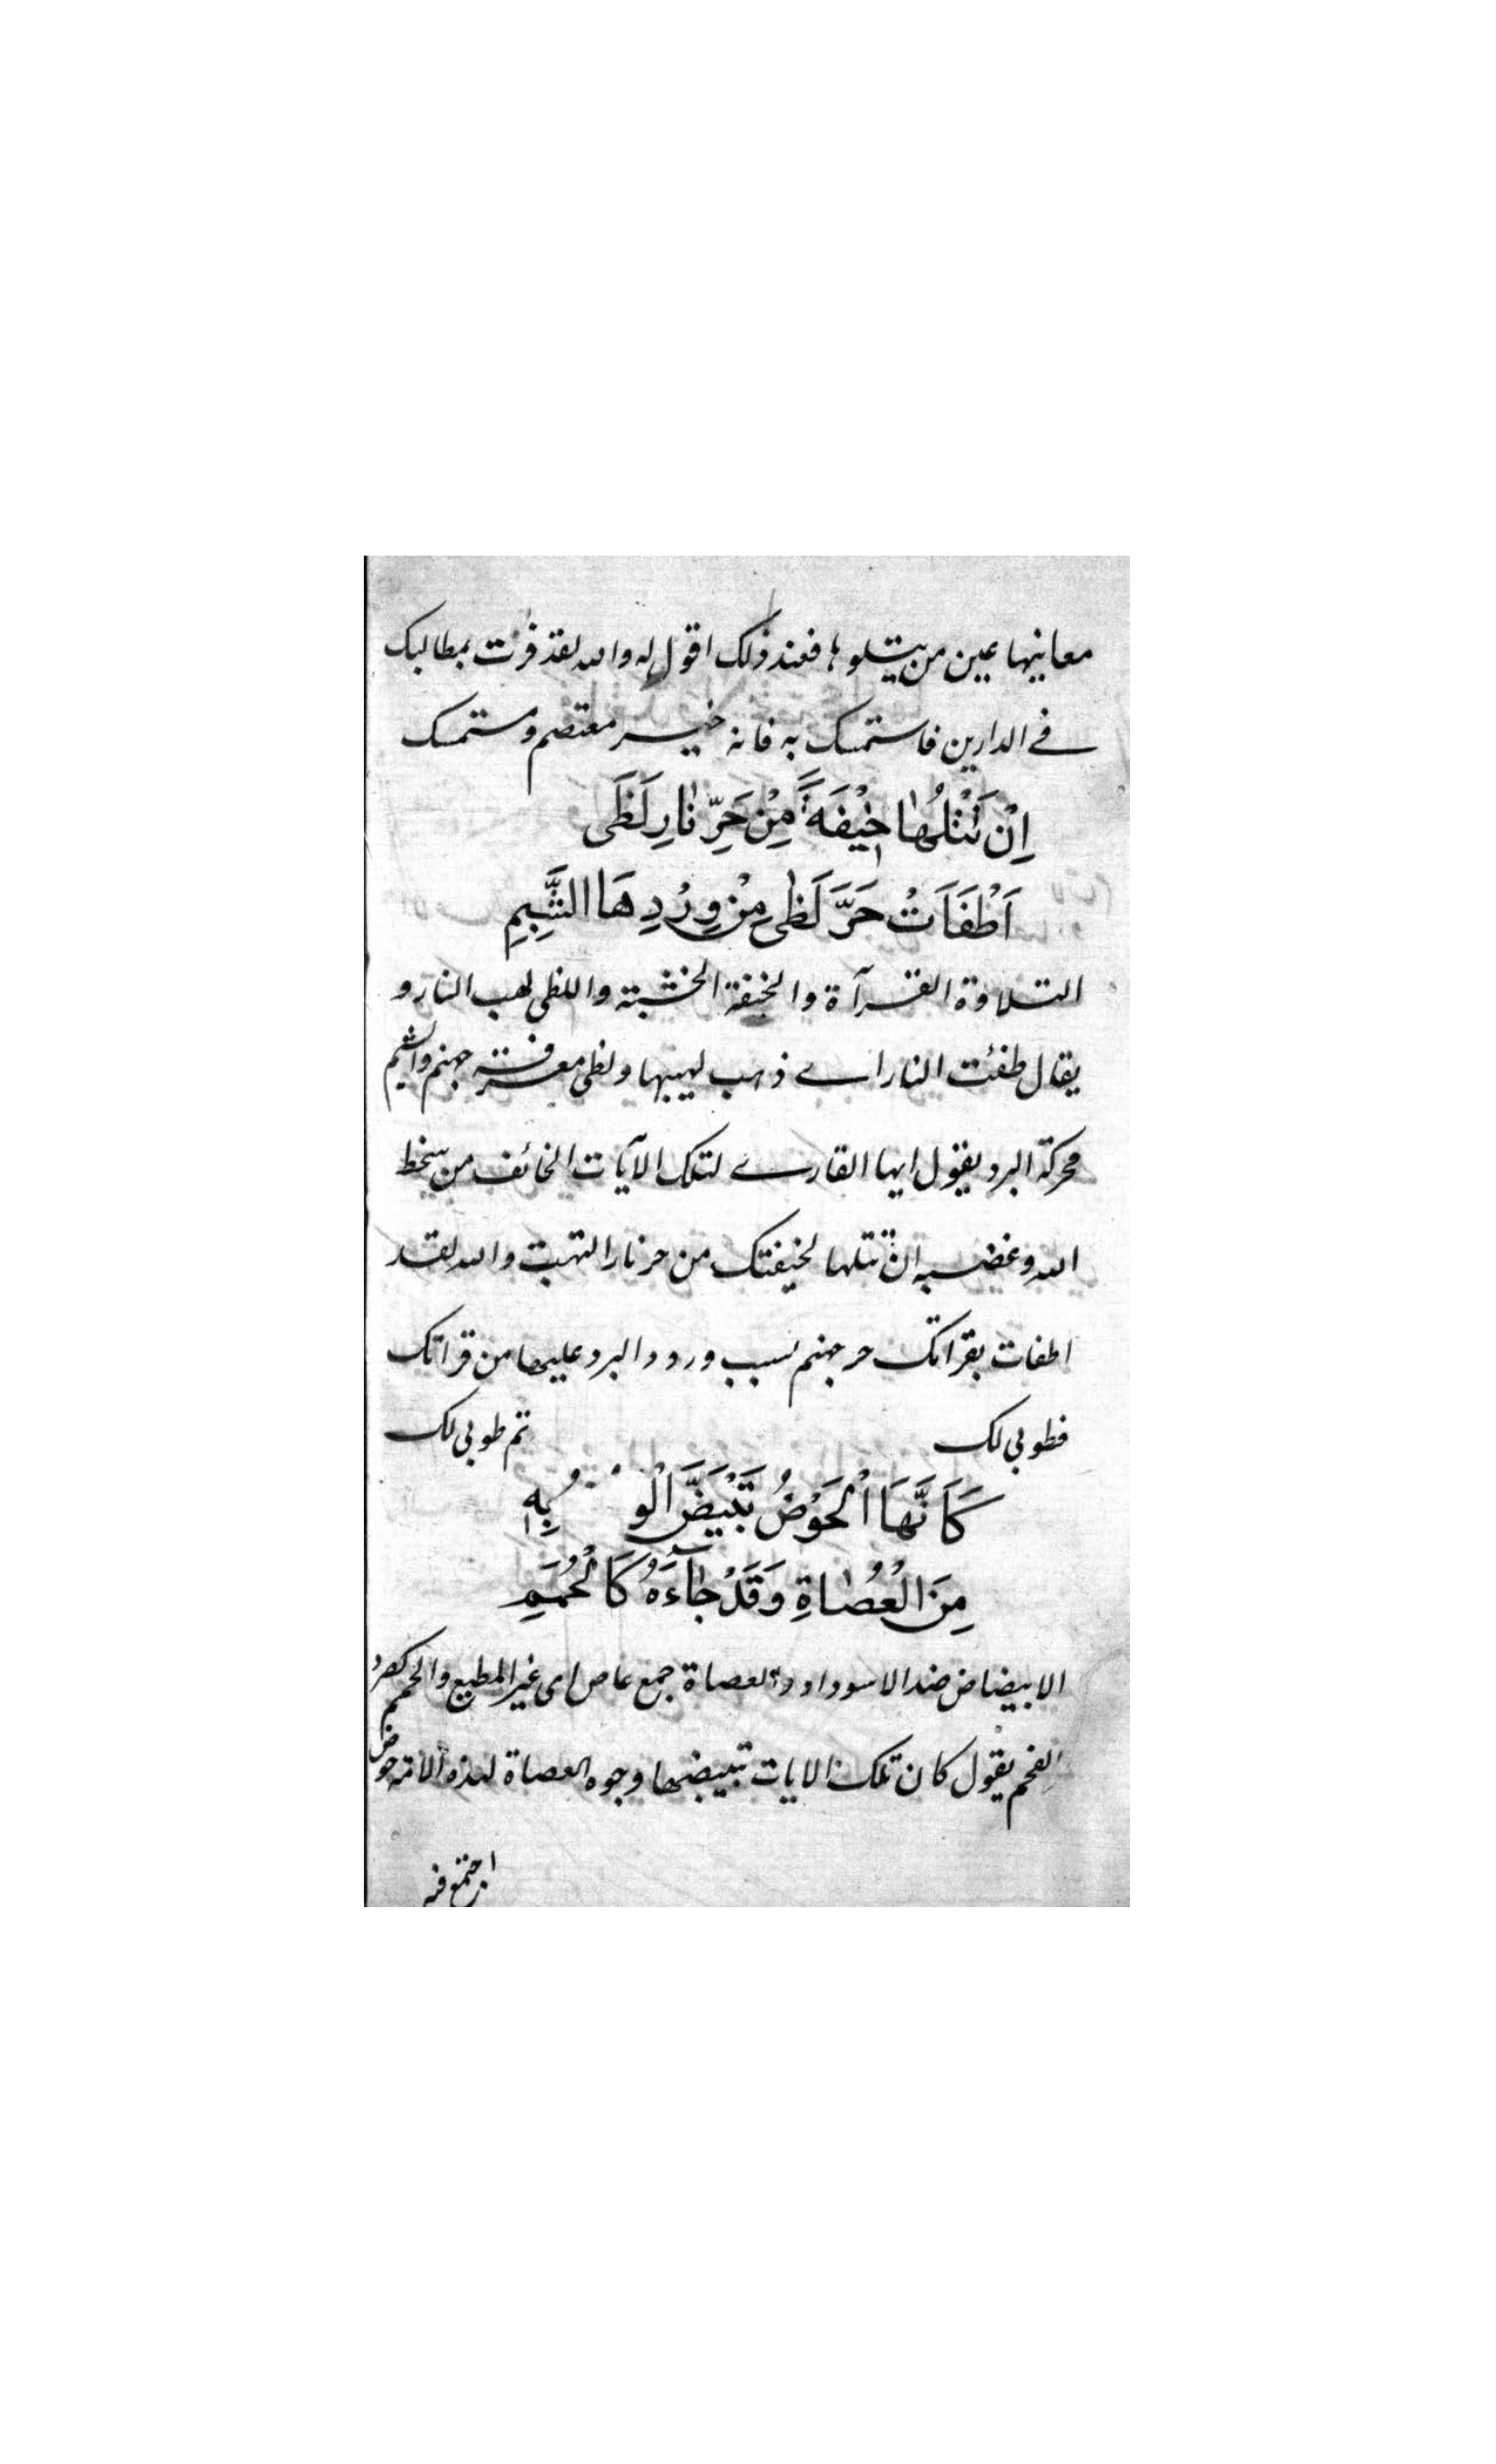 معانيها عين من يتلوها فعند ذلك اقول له والله لقد فزت بمطالبك
في الدارين فاستمسك به فانه خير معتصم ومستمسك
اِنْ تَتْلُهَا خِيْفَةً مِنْ حَرِّ نَارِ لَظَى
اَطْفَاَتْ حَرَّ لَظٰى مِنْ وِرْدِهَا الشَّبِمِ
التلاوة القرآة والخيفة الخشية واللظى لهب النار و
يقال طفئت النار اے ذهب لهيبها ولظى معرفة جهنم والشبم
محركة البرد يقول ايها القارے لتلك الآيات الخائف من سخط
الله وغضبه ان تتلها لخيفتك من حر نار التهبت والله لقد
اطفات بقراتك حر جهنم بسبب ورود البرد عليها من قراتك
فطوبى لك ثم طوبى لك
كَاَنَّهَا الْحَوْضُ تَبْيَضُّ الْوُ بِهٖ
مِنَ الْعُصَاةِ وَقَدْ جَآءَهُ كَالْحُمَمِ
الابيضاض ضد الاسوداد والعصاة جمع عاص اى غير المطيع والحمم كصرد
الفحم يقول كان تلك الايات تبييضها وجوه العصاة لهذه الامة حوض
اجتمع فيه